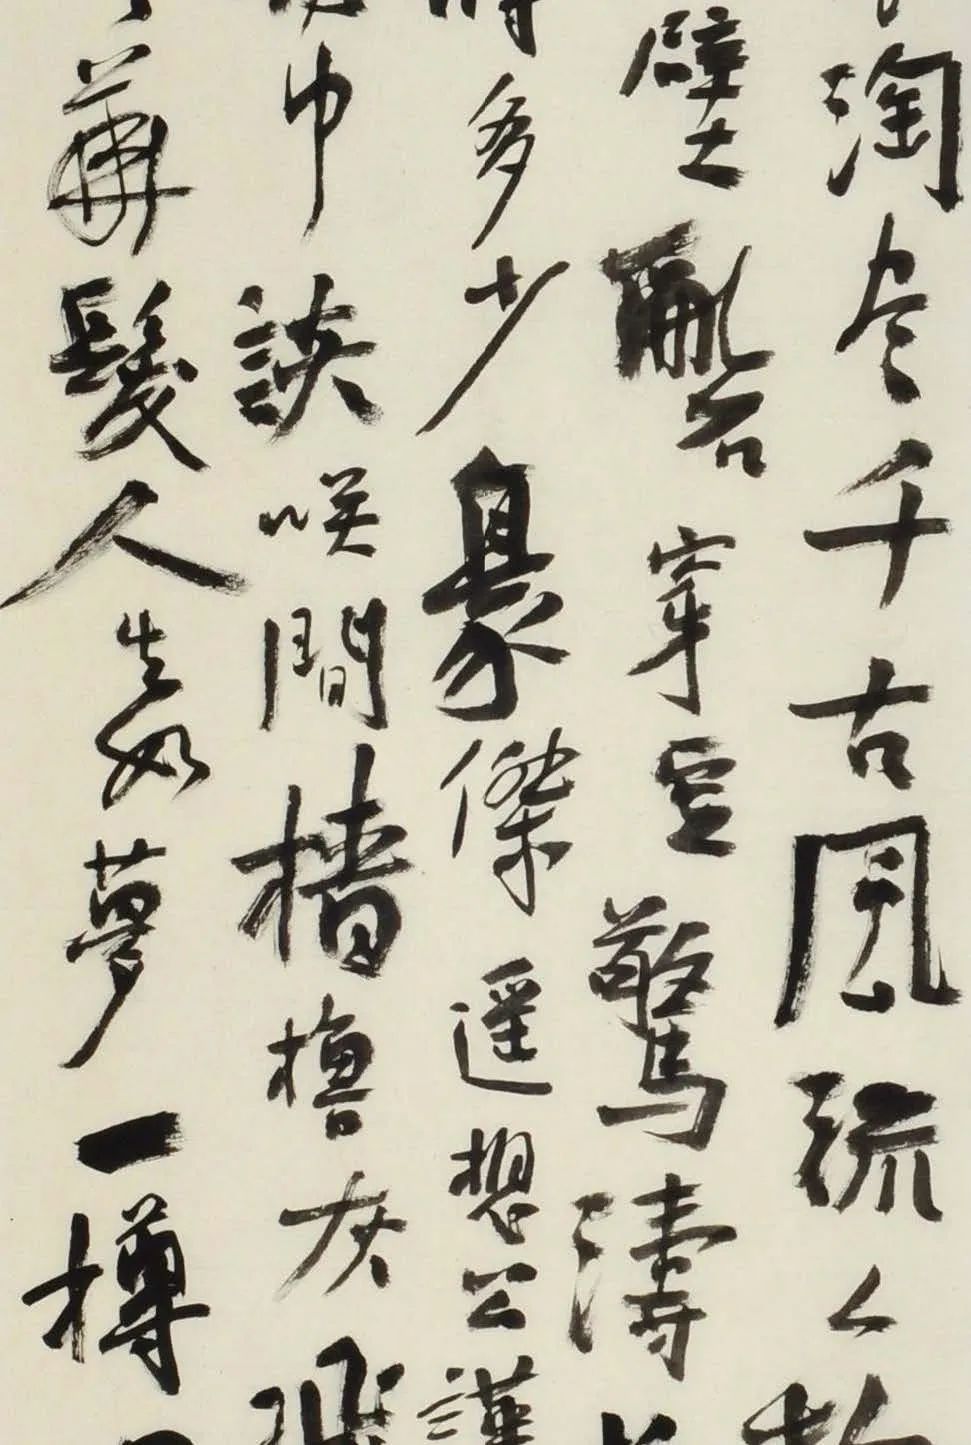 淘尽千古風流人物
壁亂石穿空驚濤
時多少豪傑遥想公謹
巾談咲間檣櫓灰飛
華髮人生如夢一樽